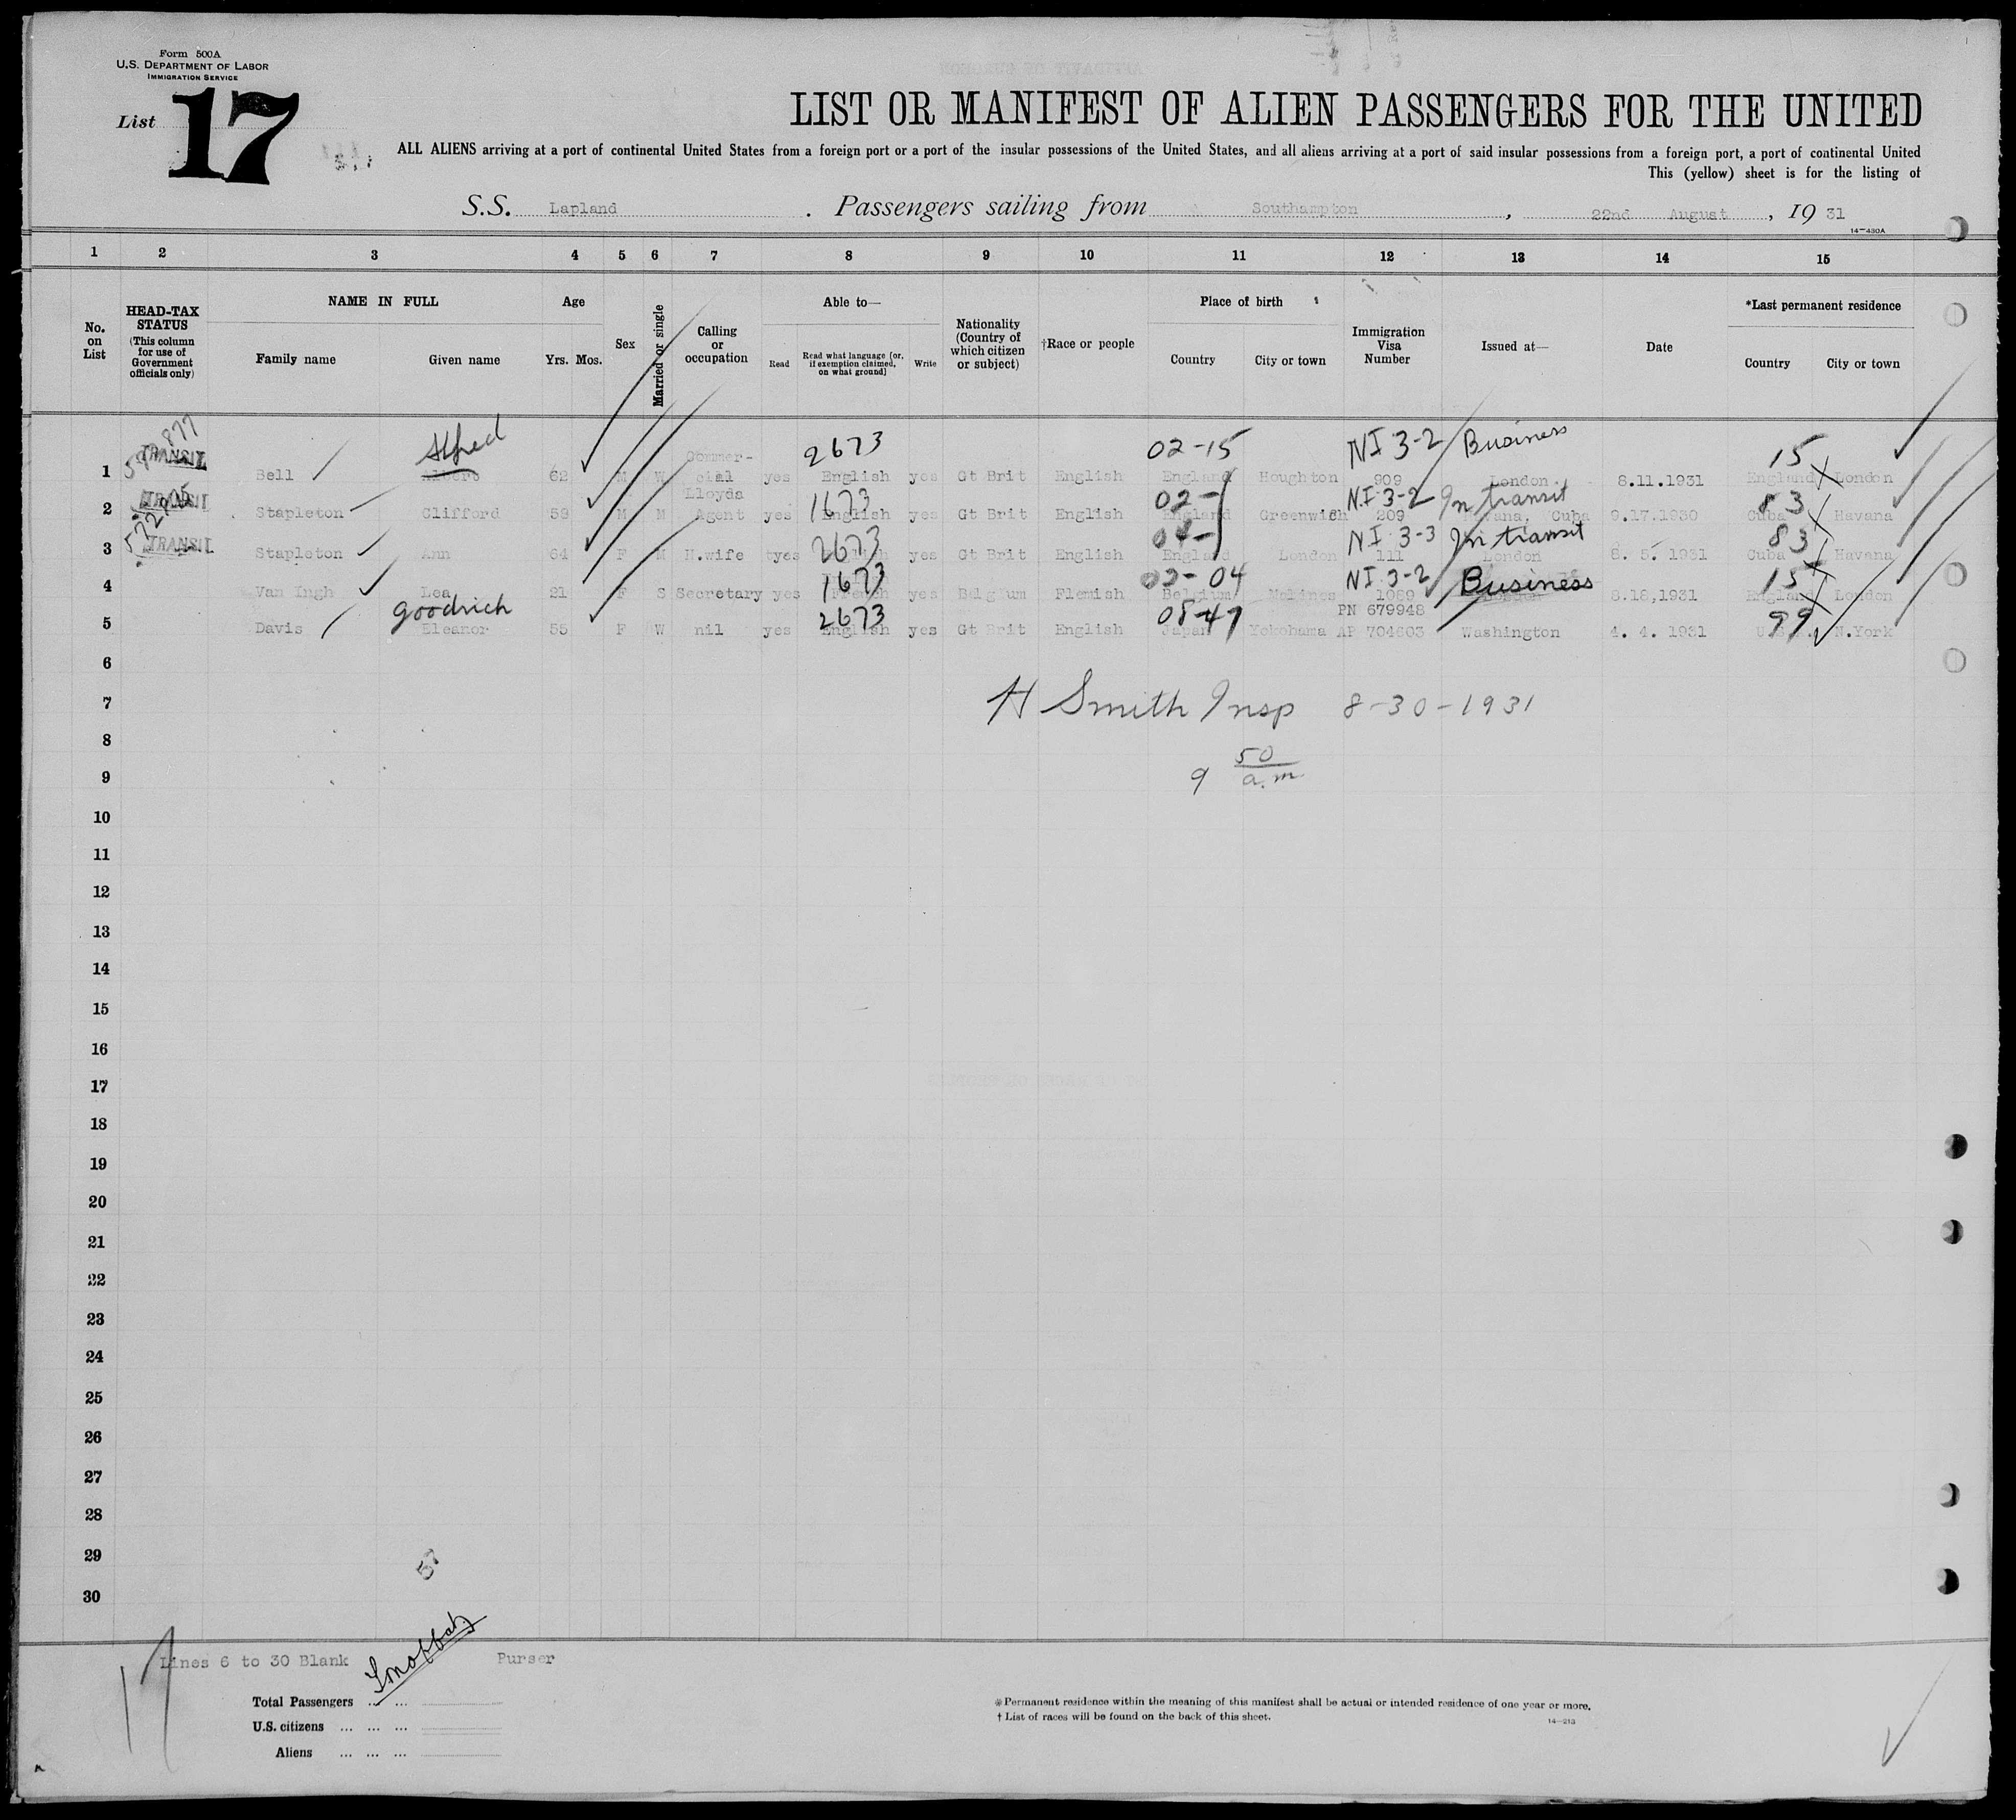 Form 500A
U.S. DEPARTMENT OF LABOR
IMMIGRATION SERVICE
List 17
LIST OR MANIFEST OF ALIEN PASSENGERS FOR THE UNITED
ALL ALIENS arriving at a port of continental United States from a foreign port or a port of the insular possessions of the United States, and all aliens arriving at a port of said insular possessions from a foreign port, a port of continental United
This (yellow) sheet is for the listing of
S.S. Lapland . Passengers sailing from Southampton , 22nd August , 19 31
14—430A
1 2 3 4 5 6 7 8 9 10 11 12 13 14 15
No. on List
HEAD-TAX STATUS (This column for use of Government officials only)
NAME IN FULL
Family name Given name
Age
Yrs. Mos.
Sex
Married or single
Calling or occupation
Able to—
Read
Read what language [or, if exemption claimed, on what ground]
Write
Nationality (Country of which citizen or subject)
†Race or people
Place of birth
Country City or town
Immigration Visa Number
Issued at—
Date
*Last permanent residence
Country City or town
Alfred 2673 02-15 NI 3-2 Business 15
1 TRANSIT Bell Albert 62 M W Commercial yes English yes Gt Brit English England Houghton 909 London 8.11.1931 England London
1673 02- NI 3-2 In transit 83
2 TRANSIT Stapleton Clifford 59 M M Lloyds Agent yes English yes Gt Brit English England Greenwich 209 Havana, Cuba 9.17.1930 Cuba Havana
2673 NI 3-3 In transit 83
3 TRANSIT Stapleton Ann 64 F M H.wife yes English yes Gt Brit English England London 111 London 8. 5. 1931 Cuba Havana
1673 02-04 NI 3-2 Business 15
4 Van Ingh Lea 21 F S Secretary yes French yes Belgium Flemish Belgium Malines 1089 8.18,1931 England London
goodrich 2673 08-47 PN 679948 99
5 Davis Eleanor 55 F W nil yes English yes Gt Brit English Japan Yokohama AP 704603 Washington 4. 4. 1931 N.York
6
7 H Smith Insp 8-30-1931
8
9 9 50 a.m
10
11
12
13
14
15
16
17
18
19
20
21
22
23
24
25
26
27
28
29
30
Lines 6 to 30 Blank Purser
17
Total Passengers ... ...
U.S. citizens ... ... ...
Aliens ... ... ...
*Permanent residence within the meaning of this manifest shall be actual or intended residence of one year or more.
† List of races will be found on the back of this sheet.
14—213